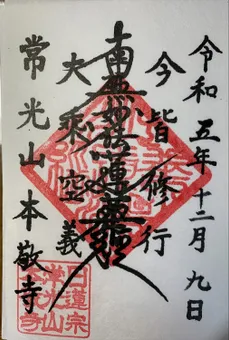 令和五年十二月九日
今皆修行
南無妙法蓮華経
大乗空義
常光山 本敬寺
日蓮宗
常光山
本敬寺